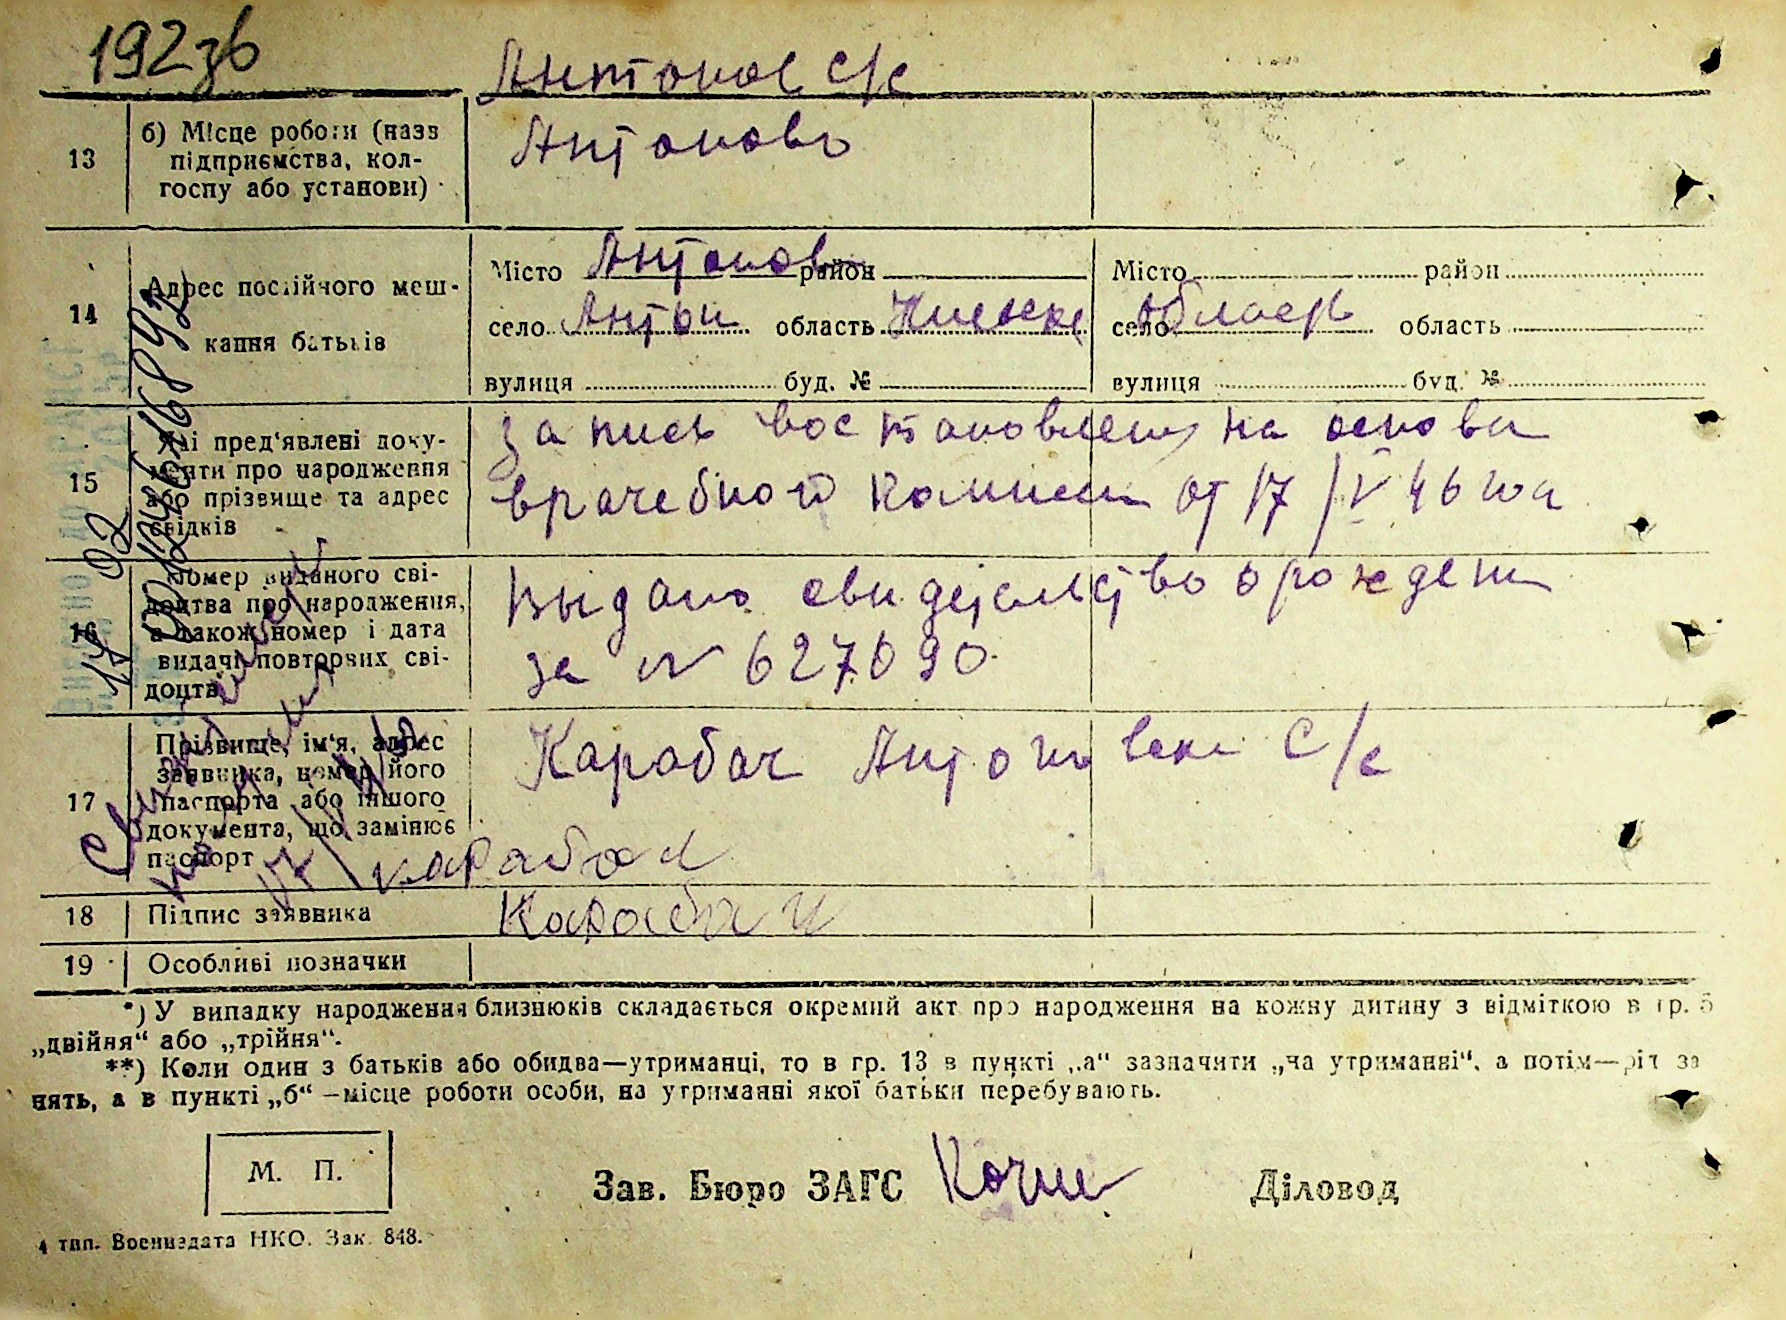 192зв
Антонов с/с
13
б) Місце роботи (назв
підприємства, кол-
госпу або установи)
Антоновъ
14
Адрес постійного меш-
кання батьків
Місто Антонов район
село Антон область Киевск
вулиця буд. №
Місто район
село Область область
вулиця буд. №
15
Які пред'явлені доку-
менти про народження
або прізвище та адрес
свідків
Запись востановлену на основи
врачебной комисии от 17/V 46 года
16
Номер виданого сві-
доцтва про народження,
а також номер і дата
видачі повторних сві-
доцтв
Выдано свидетельство о рождени
за № 627090
17
Прізвище, ім'я, адрес
заявника, номер його
паспорта або іншого
документа, що замінює
паспорт
Карабач Антоновски С/с
карабач
18
Підпис заявника
Карабач
19
Особливі позначки
*) У випадку народження близнюків складається окремий акт про народження на кожну дитину з відміткою в гр. 5
„двійня“ або „трійня“.
**) Коли один з батьків або обидва—утриманці, то в гр. 13 в пункті „а“ зазначити „на утриманні“, а потім—ріт за
нять, а в пункті „б“ —місце роботи особи, на утриманні якої батьки перебувають.
М. П.
Зав. Бюро ЗАГС
Діловод
4 тип. Воениздата НКО. Зак. 848.